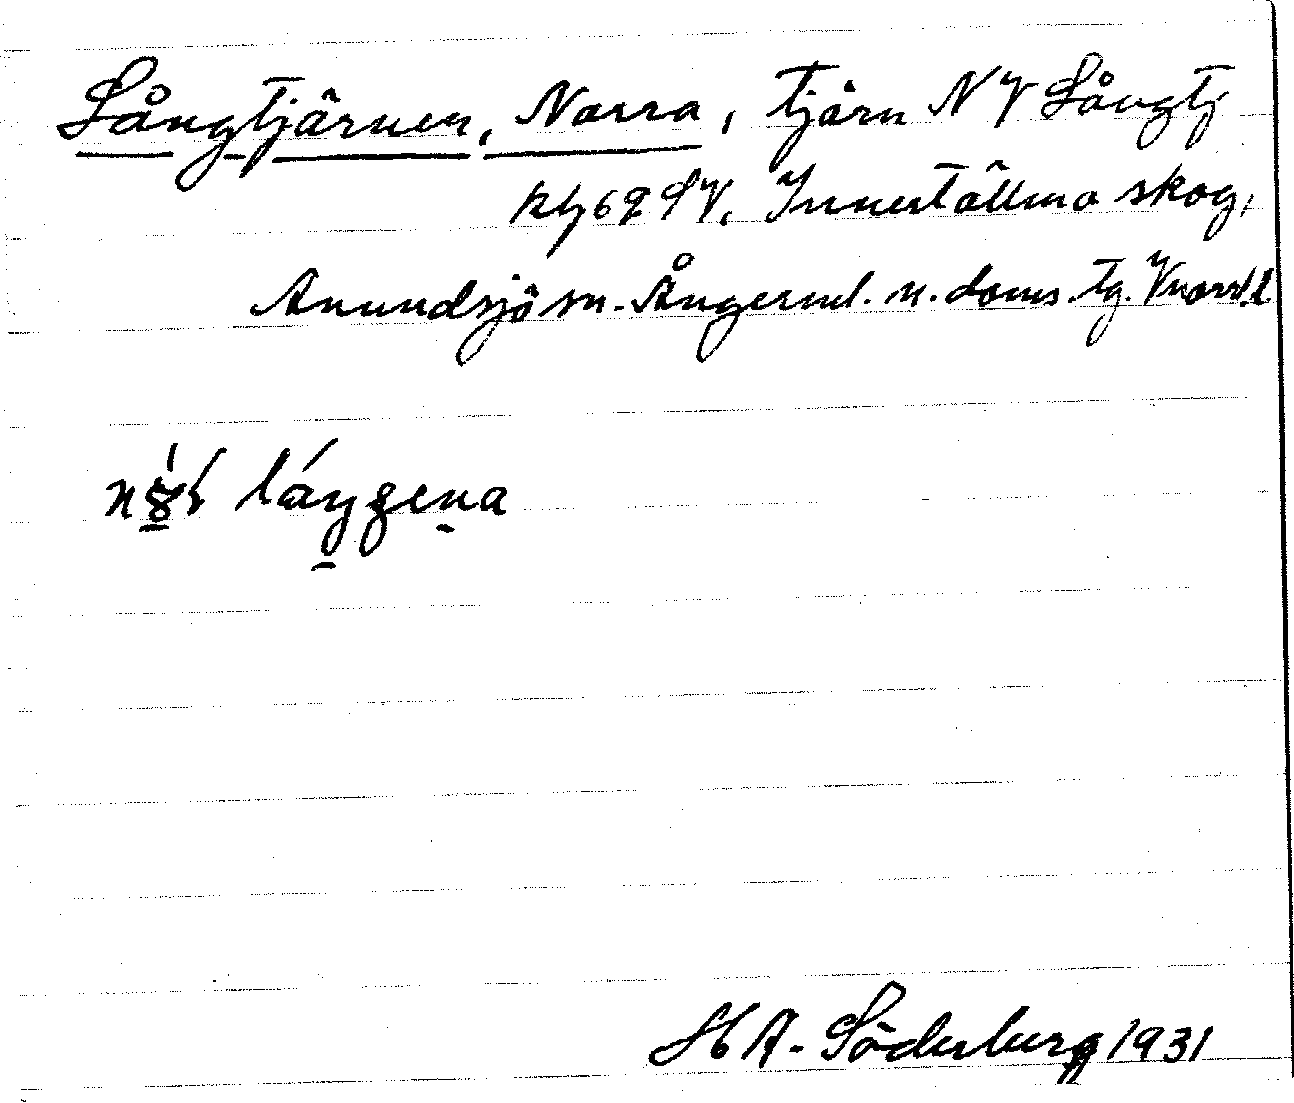 Långtjärnen, Norra, tjärn NV Långtj
kbl 69 SV, Inneställmo skog,
Anundsjö sn. Ångerml. n. doms. tg. Vnorrl. l
H A. Söderberg 1931